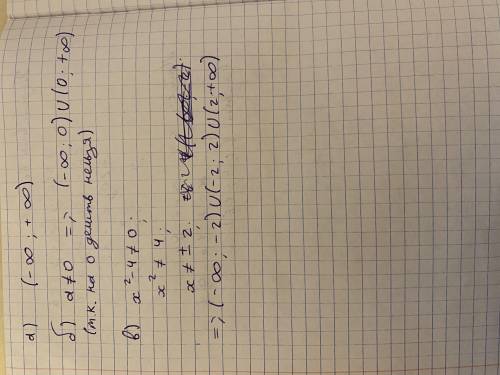 а) (-∞; +∞)
б) a≠0 =; (-∞; 0) U (0; +∞)
(т.к. на 0 делить нельзя)
в) x²-4≠0;
x²≠4;
x≠±2;
=; (-∞; -2) U (-2; 2) U (2; +∞)